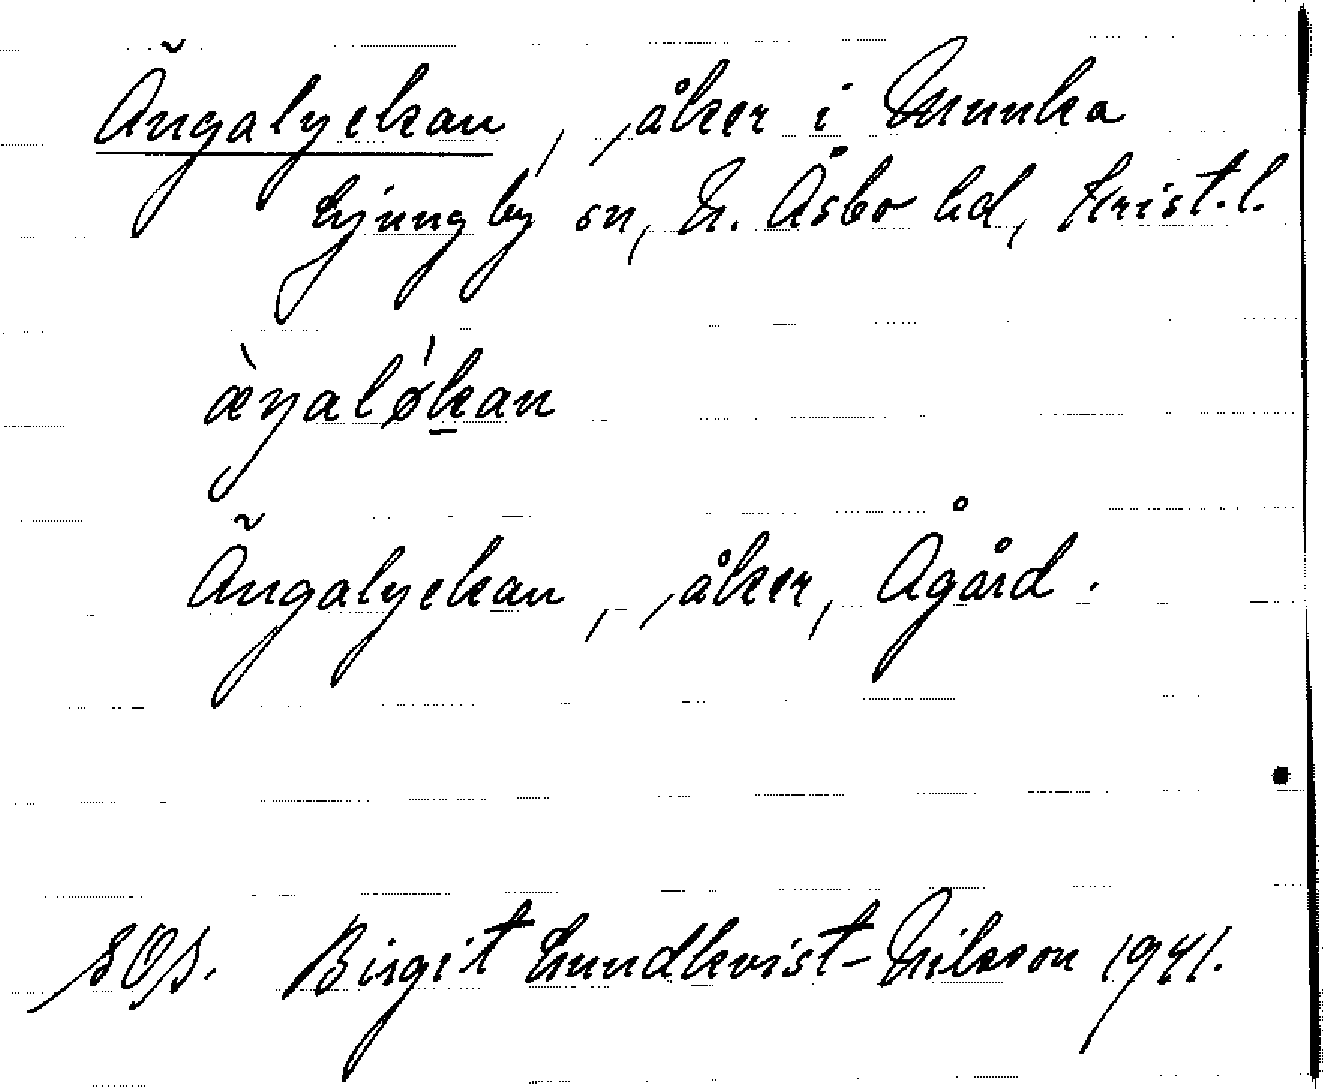 Ängalyckan, åker i Munka
Ljungby sn, N. Åsbo hd, Krist. l.
æ̀ŋalǿkan
Ängalyckan, åker, Ågård.
SOS. Birgit Lundkvist-Nilsson 1941.